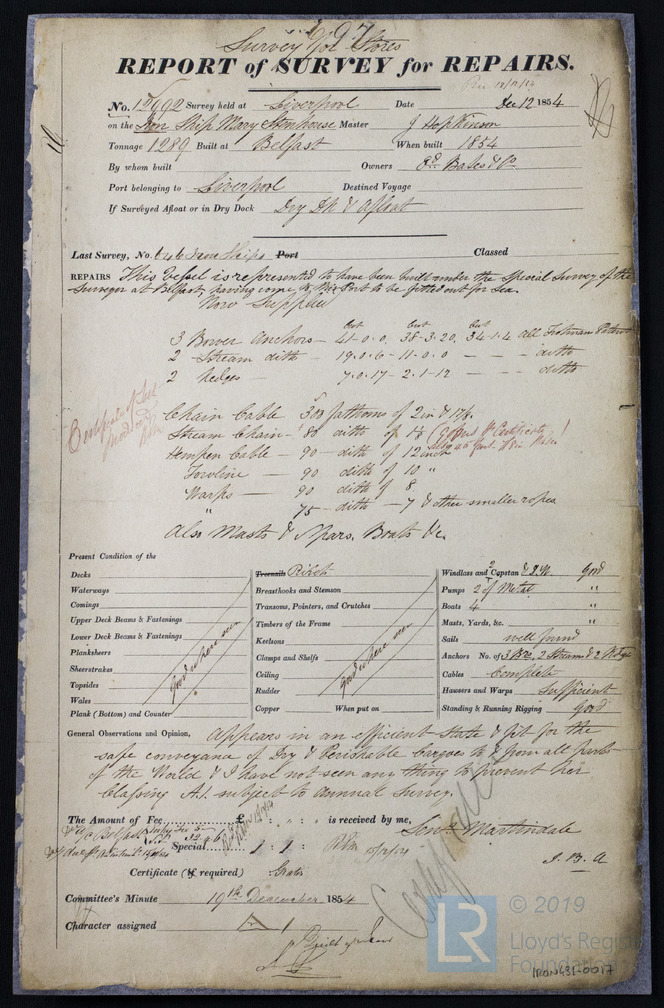 Survey for Stores
REPORT of SURVEY for REPAIRS.
No. Survey held at Liverpool Date Dec 12 1854
on the Iron Ship Mary Stenhouse Master J Hopkinson
Tonnage 1289 Built at Belfast When built 1854
By whom built Owners Ed. Bates & Co
Port belonging to Liverpool Destined Voyage
If Surveyed Afloat or in Dry Dock Dry Dk & Afloat
Last Survey, No. Iron Ships Port Classed
REPAIRS This Vessel is represented to have been built under the Special Survey of the
Surveyor at Belfast, having come to this Port to be fitted out for Sea.
Now Supplied
Cwt Cwt Cwt
3 Bower Anchors - 41-0-0, 38-3-20, 34-1-4 all Trotman Patent
2 Stream ditto - 19-0-6 - 11-0-0 - - - ditto
2 Kedges - 7-0-17 - 2-1-12 - - ditto
Chain Cable 300 fathoms of 2 in & 1 7/8
Stream Chain - 80 ditto of 1 1/8
Hempen Cable - 90 - ditto of 12 inch
Towline - 90 ditto of 10 "
Warps - 90 ditto of 8
" 75 - ditto - 7 & other smaller ropes
Also Masts & Spars, Boats &c.
Certificate of Test produced
Present Condition of the
Decks
Waterways
Comings
Upper Deck Beams & Fastenings
Lower Deck Beams & Fastenings
Planksheers
Sheerstrakes
Topsides
Wales
Plank (Bottom) and Counter
good where seen
Treenails Rivets
Breasthooks and Stemson
Transoms, Pointers, and Crutches
Timbers of the Frame
Keelsons
Clamps and Shelfs
Ceiling
Rudder
Copper When put on
good where seen
Windlass and 2 Capstan & P.W. good
Pumps 2 of Metal "
Boats 4 "
Masts, Yards, &c. "
Sails well found
Anchors No. of 3 Br, 2 Stream & 2 Kedges
Cables Complete
Hawsers and Warps Sufficient
Standing & Running Rigging good
General Observations and Opinion, Appears in an efficient state & fit for the
safe conveyance of Dry & Perishable Cargoes to & from all parts
of the World & I have not seen any thing to prevent her
Classing A1. subject to annual Survey.
The Amount of Fee £ : : is received by me,
Special 1 : 1 :
Martindale
Certificate (If required) Gratis
Committee's Minute 19th December 1854
Character assigned
Certificate
LR
© 2019
Lloyd's Register
Foundation
IRON431-0017